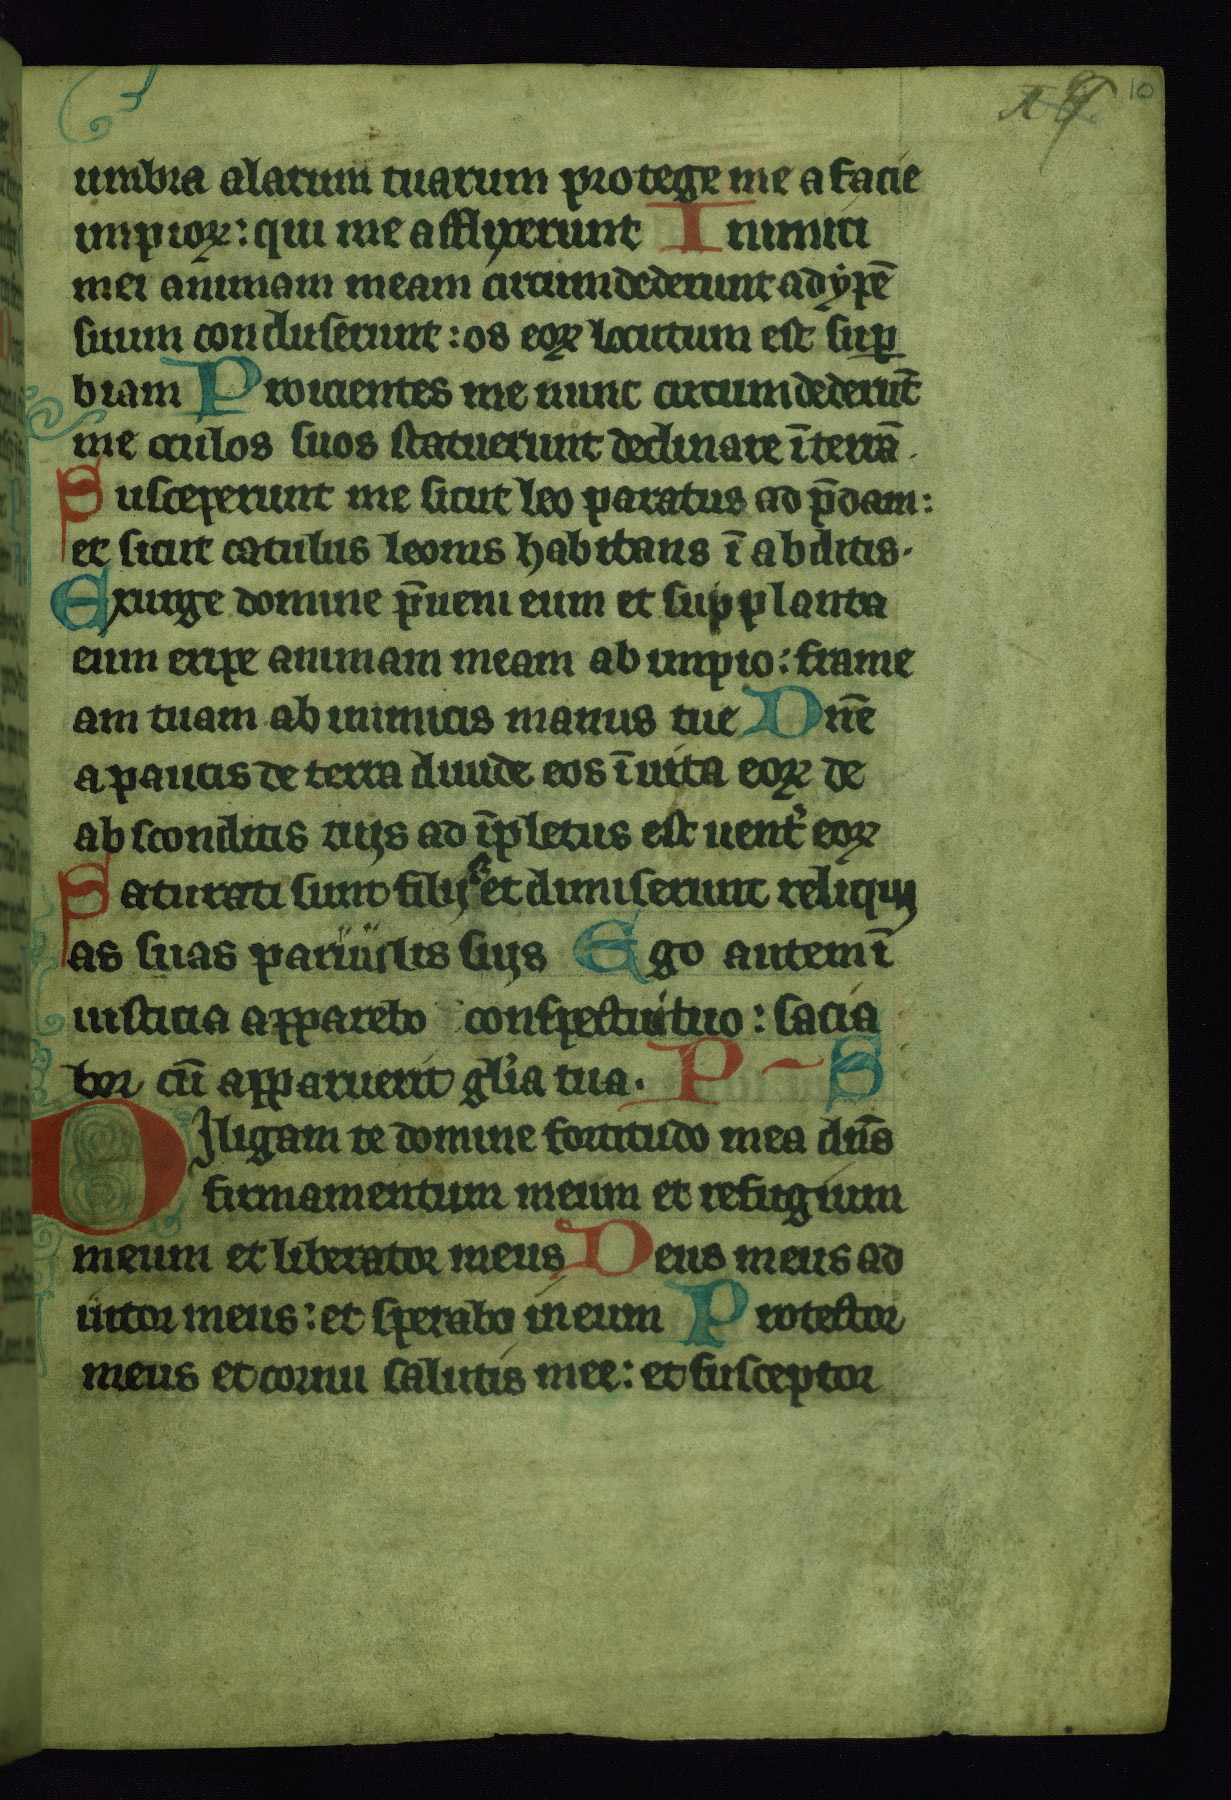 10
umbra alarum tuarum protege me a facie
impioꝝ: qui me afflixerunt Inimici
mei animam meam circumdederunt adypē
suum concluserunt: os eoꝝ locutum est suꝑ
biam Proicientes me nunc circumdederūt
me oculos suos statuerunt declinare ī terrā.
Susceperunt me sicut leo paratus ad p̄dam:
et sicut catulus leonis habitans ī abditis.
Exurge domine p̄ueni eum et supplanta
eum eripe animam meam ab impio: frame
am tuam ab inimicis manus tue Dn̄e
a paucis de terra diuide eos ī uita eoꝝ de
absconditis tuis ad īpletus est uent̓ eoꝝ
Saturati sunt filijs et dimiserunt reliquij
as suas paruulis suis Ego autem ī
iusticia apparebo conspectui tuo: sacia
bor cū apparuerit gl̄ia tua. P S
Diligam te domine fortitudo mea dn̄s
firmamentum meum et refugium
meum et liberator meus Deus meus ad
iutor meus: et sperabo in eum Protector
meus et cornu salutis mee: et susceptor